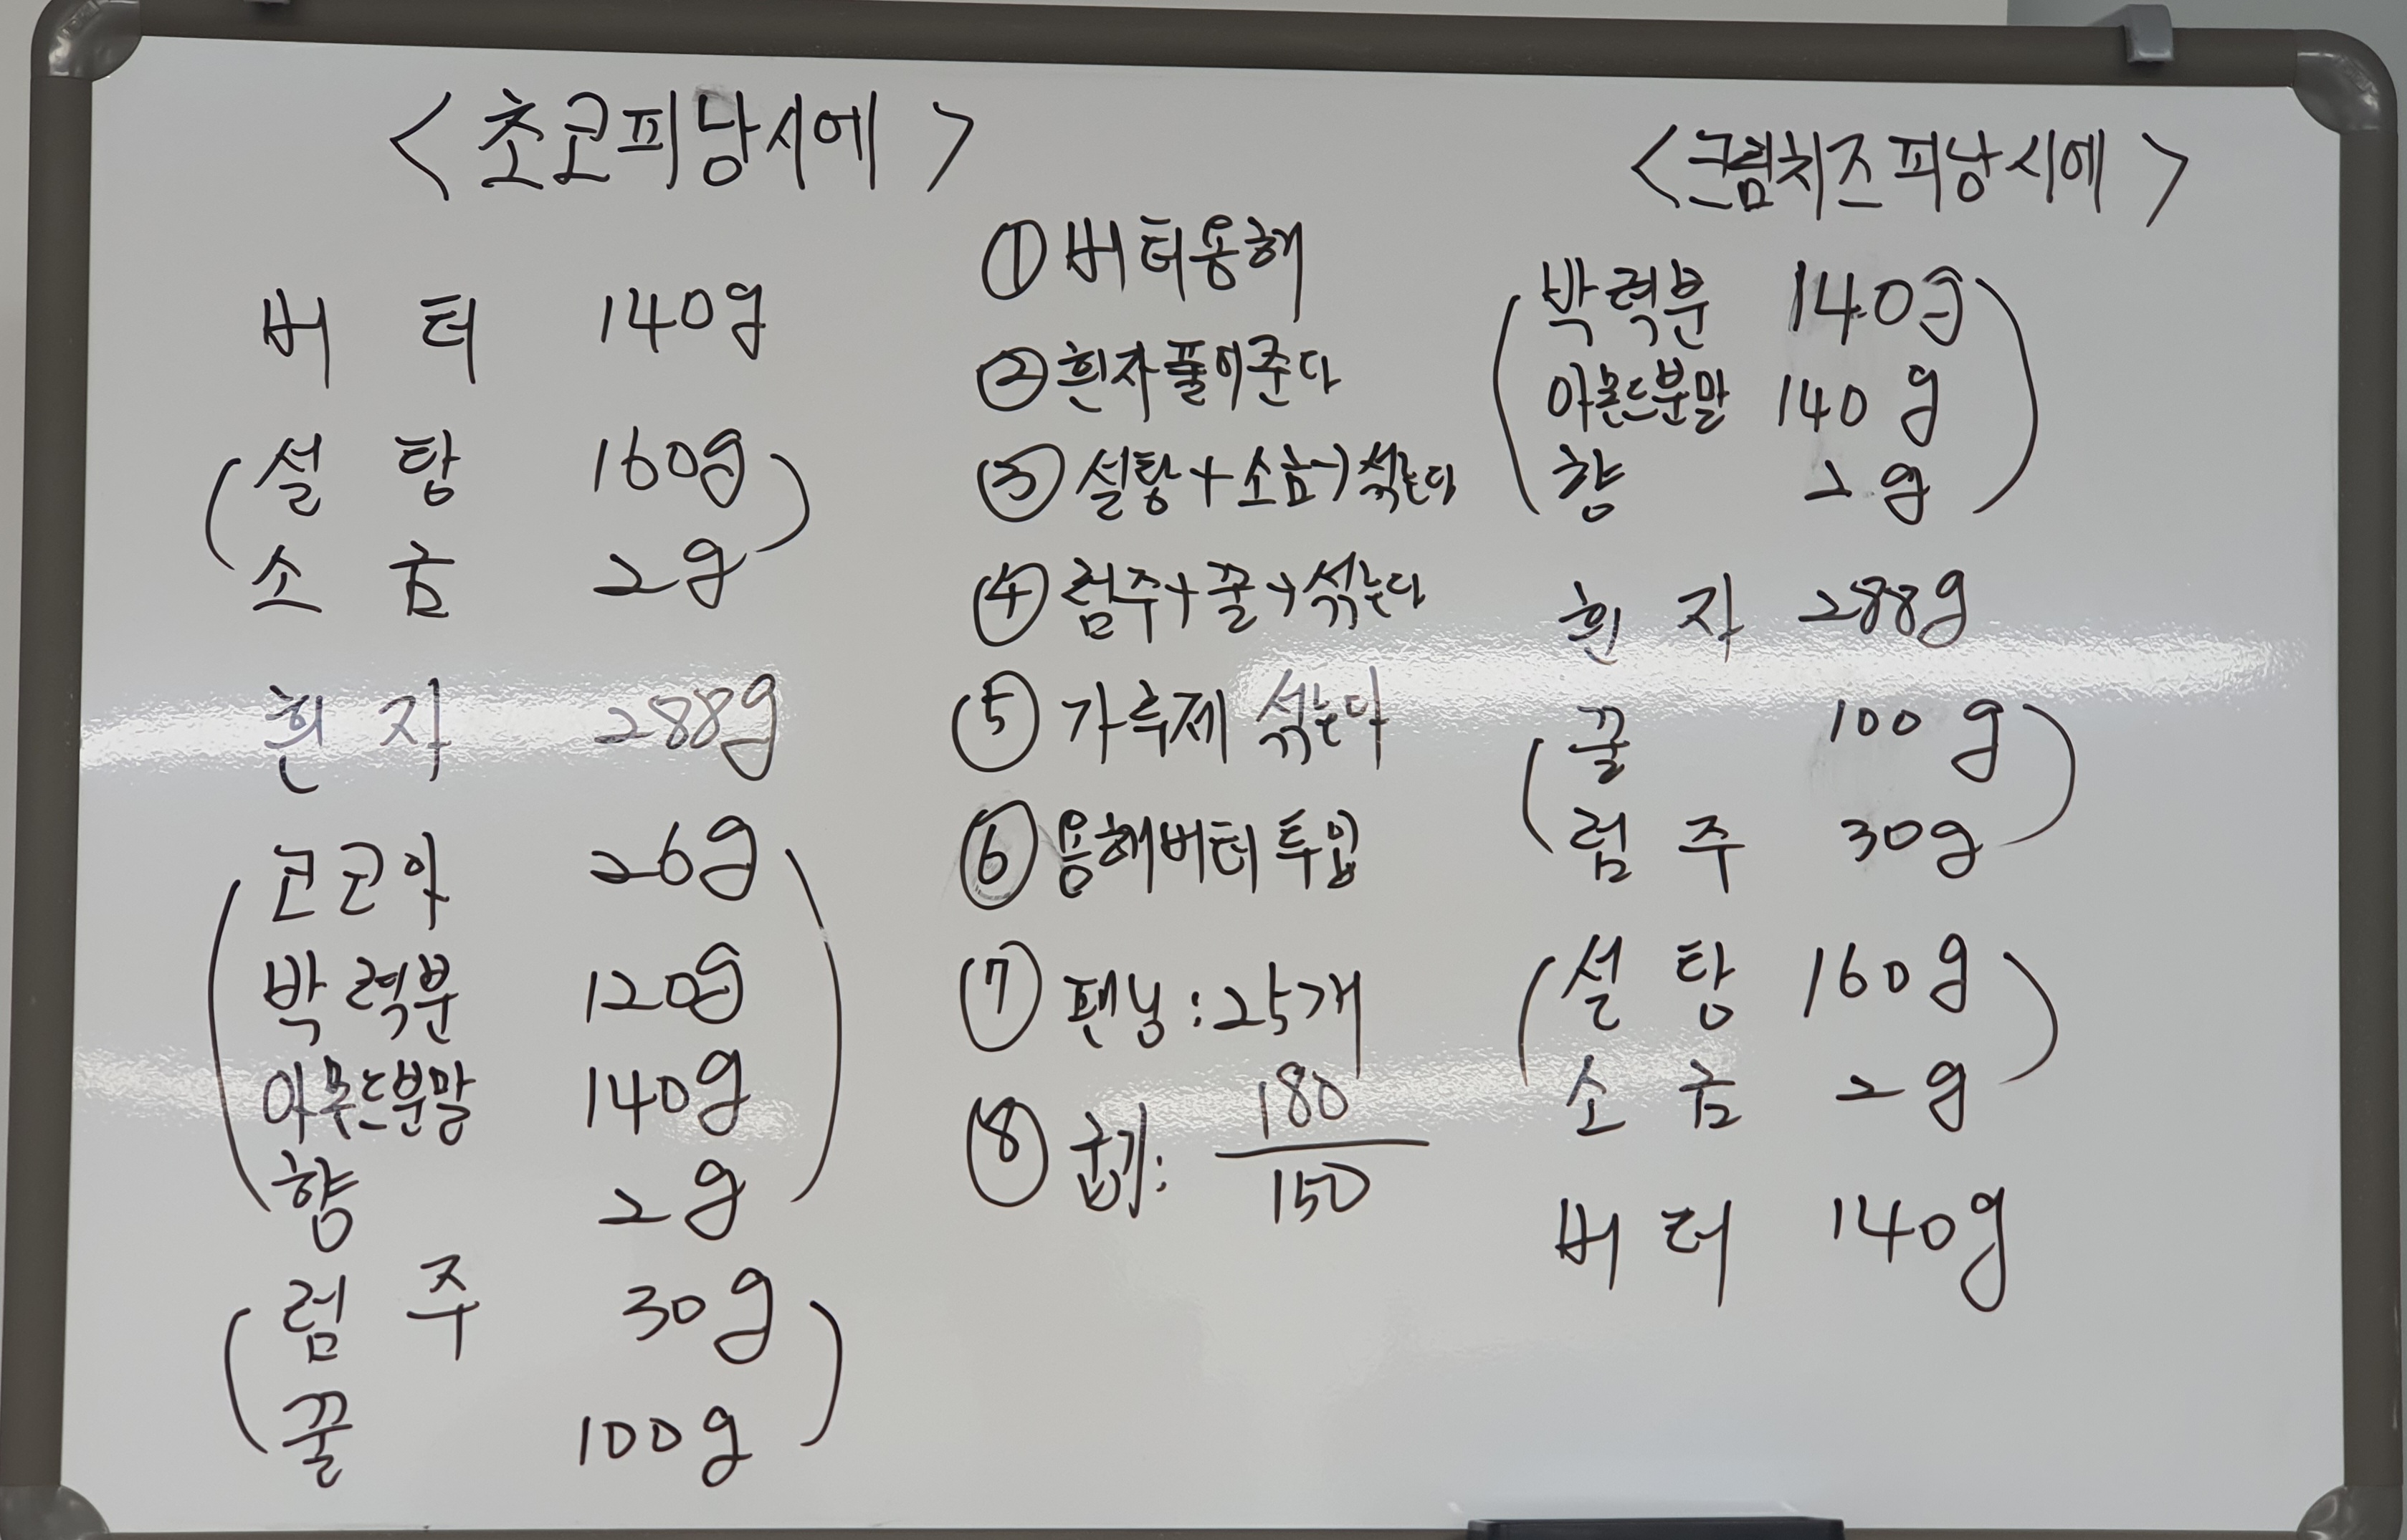 <초코피낭시에>
버터 140g
(설탕 160g
소금 2g)
흰자 288g
(코코아 26g
박력분 120g
아몬드분말 140g
향 2g)
(럼주 30g
꿀 100g)
① 버터용해
② 흰자풀어준다
③ 설탕+소금→섞는다
④ 럼주+꿀→섞는다
⑤ 가루제 섞는다
⑥ 용해버터 투입
⑦ 팬닝 : 25개
⑧ 굽기 : 180/150
<크림치즈피낭시에>
(박력분 140g
아몬드분말 140g
향 2g)
흰자 288g
(꿀 100g
럼주 30g)
(설탕 160g
소금 2g)
버터 140g